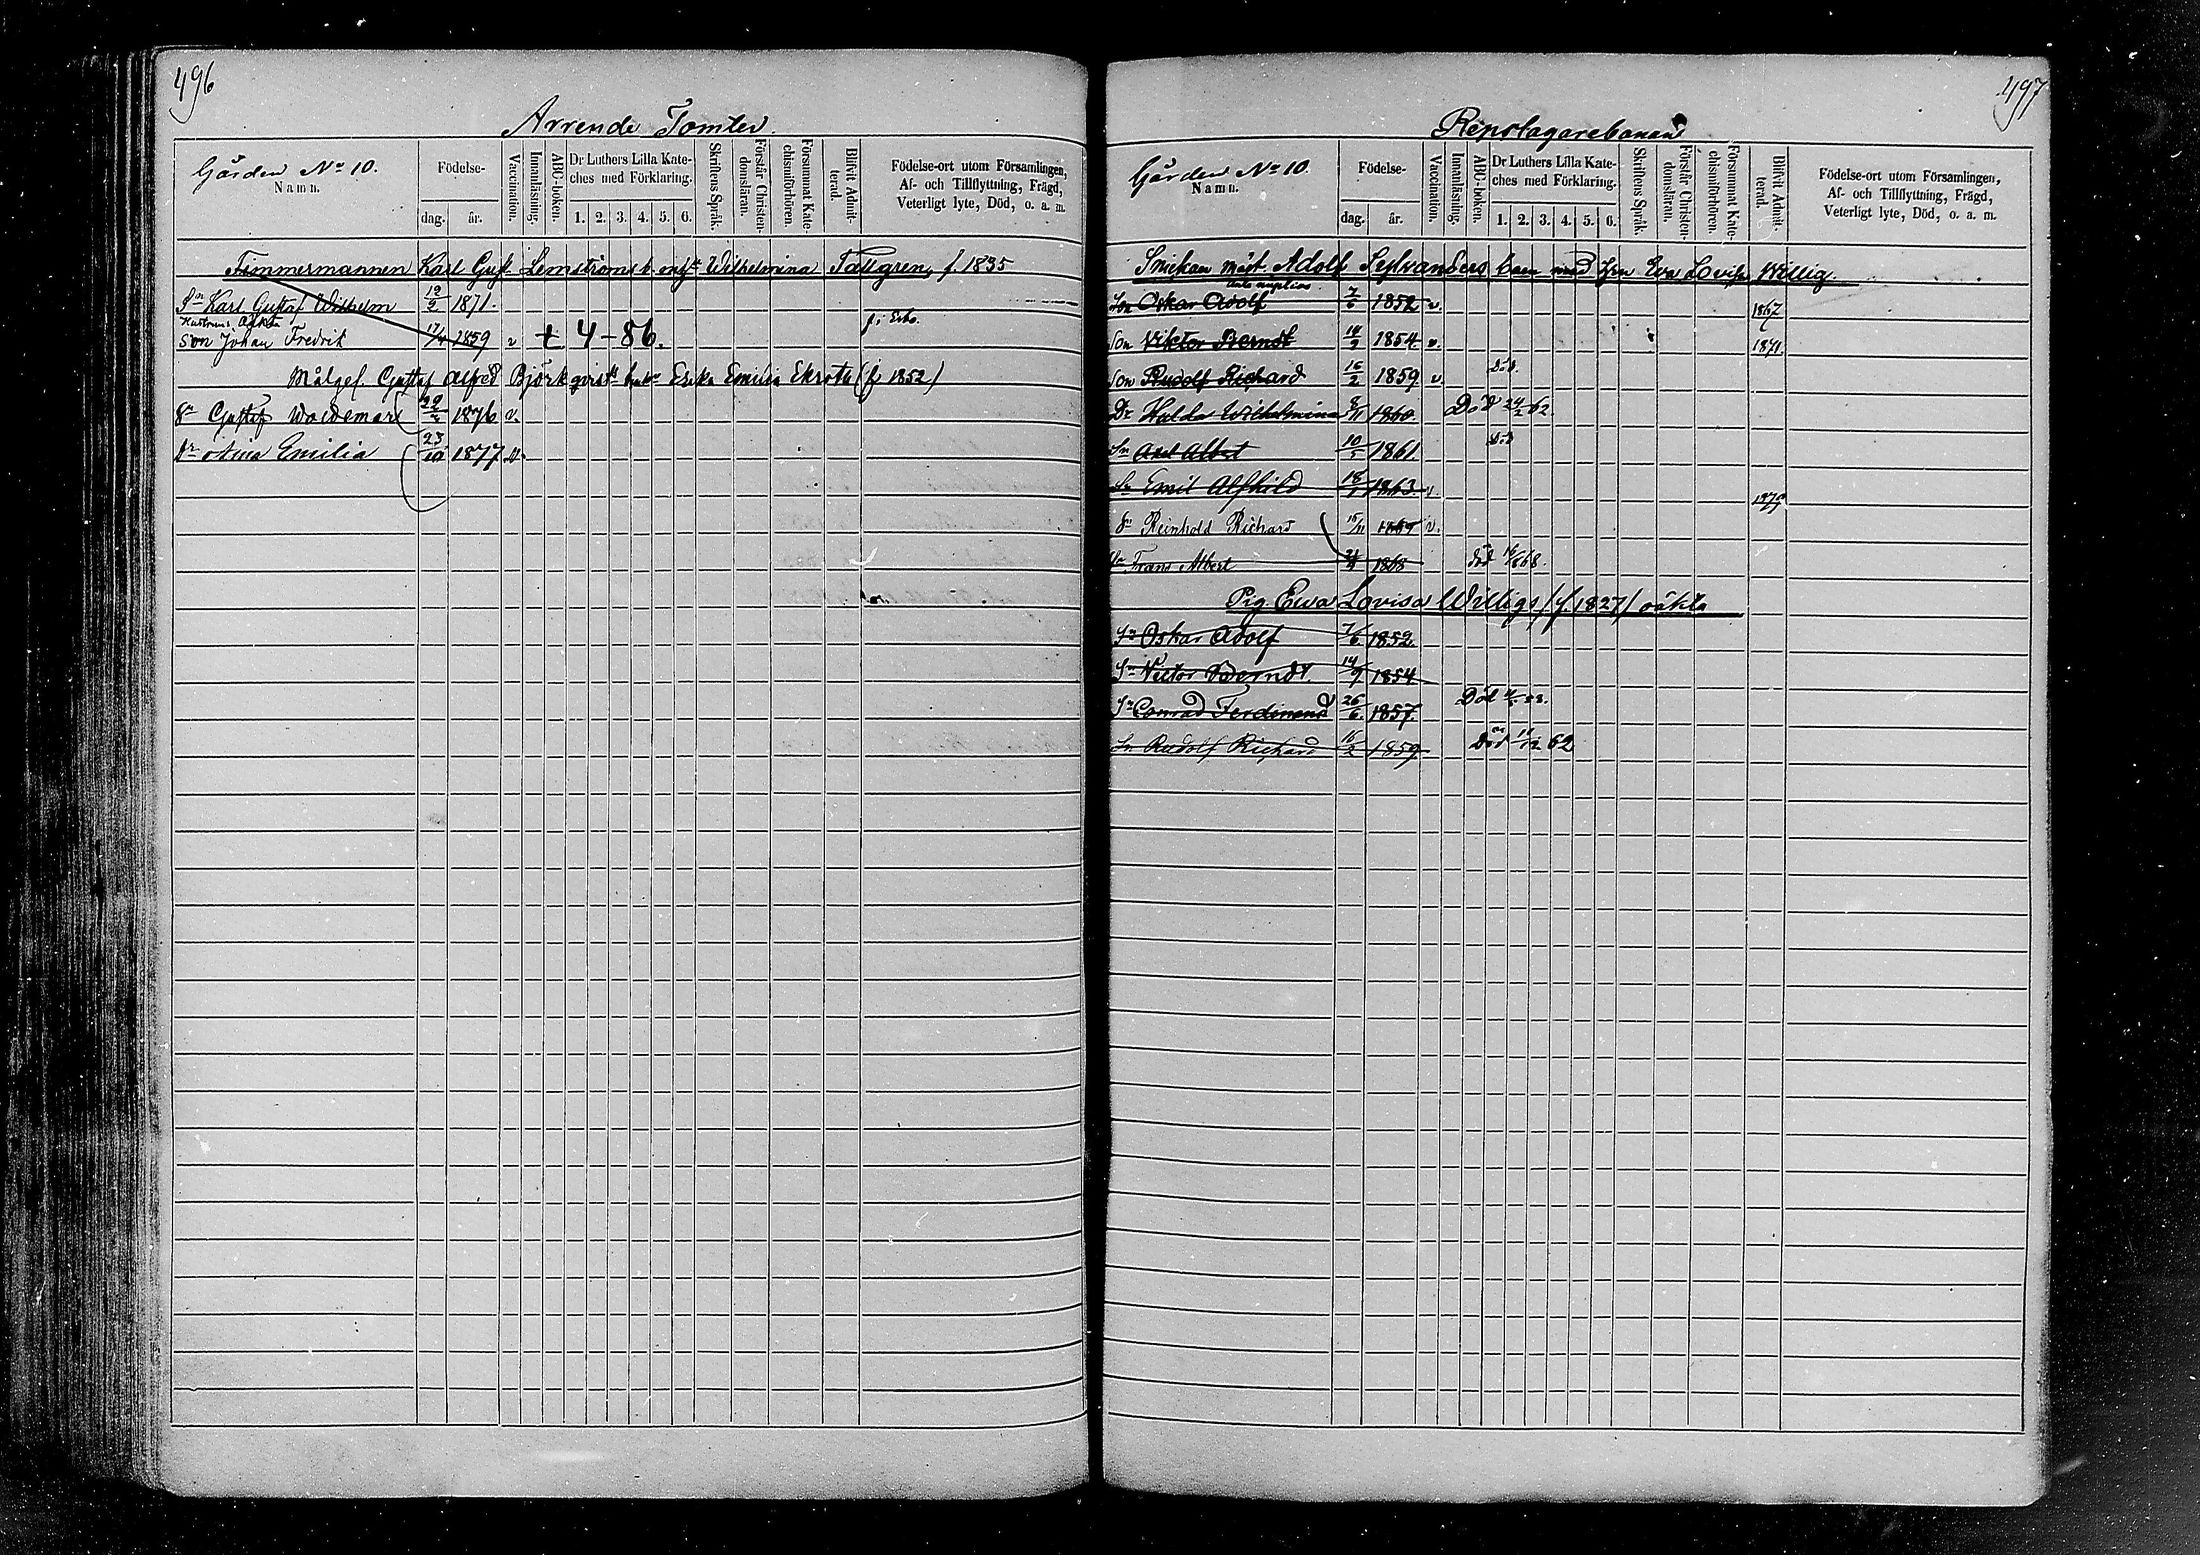 496
Arrende Tomter.
Gården No 10.
Namn.
Födelse-
dag. år.
Vaccination.
Innanläsning.
ABC-boken.
Dr Luthers Lilla Kate-
ches med Förklaring.
1. 2. 3. 4. 5. 6.
Skriftens Språk.
Förstår Christen-
domsläran.
Försummat Kate-
chismiförhören.
Blifvit Admit-
terad.
Födelse-ort utom Församlingen,
Af- och Tillflyttning, Frägd,
Veterligt lyte, Död, o. a. m.
Timmermannen Karl Gust. Lemströms Wilhelmina Tallgren, f 1835
Sn Karl Gustaf Wilhelm 1871.
Hustruns
Son Johan Fredrik 17/4 1859 v + 4-86.
Målgef. Gustaf Alfred Björkqvists Erika Emilia (f 1852)
Sn Gustaf Woldemar 1876 v.
Dr Aina Emilia 23/10 1877 v.
497
Repslagarebanan
Gården No 10.
Namn.
Födelse-
dag. år.
Vaccination.
Innanläsning.
ABC-boken.
Dr Luthers Lilla Kate-
ches med Förklaring.
1. 2. 3. 4. 5. 6.
Skriftens Språk.
Förstår Christen-
domsläran.
Försummat Kate-
chismiförhören.
Blifvit Admit-
terad.
Födelse-ort utom Församlingen,
Af- och Tillflyttning, Frägd,
Veterligt lyte, Död, o. a. m.
Adolf Sylvanders barn med Eva Lovisa Willig.
Son Oskar Adolf 7/6 1852 v. 1867
Son Viktor Berndt 14/9 1854 v. 1871.
Son Rudolf Richard 16/2 1859 v. Död.
Dr Hulda Wilhelmina 8/11 1860. Död 24/2 62
Sn Axel Albert 10/5 1861. Död
Sn Emil Alfhild 18/1 1863. v.
Sn Reinhold Richard 15/11 v.
Sn Frans Albert 1868 död 16/8 68.
Pig. Ewa Lovisa Willigs /f. 1827/ oäkta
Sn Oskar Adolf 7/6 1852.
Sn Victor Berndt. 14/9 1854
Sn Conrad Ferdinand 26/6 1857. Död
Sn Rudolf Richard 16/2 1859 Död 62